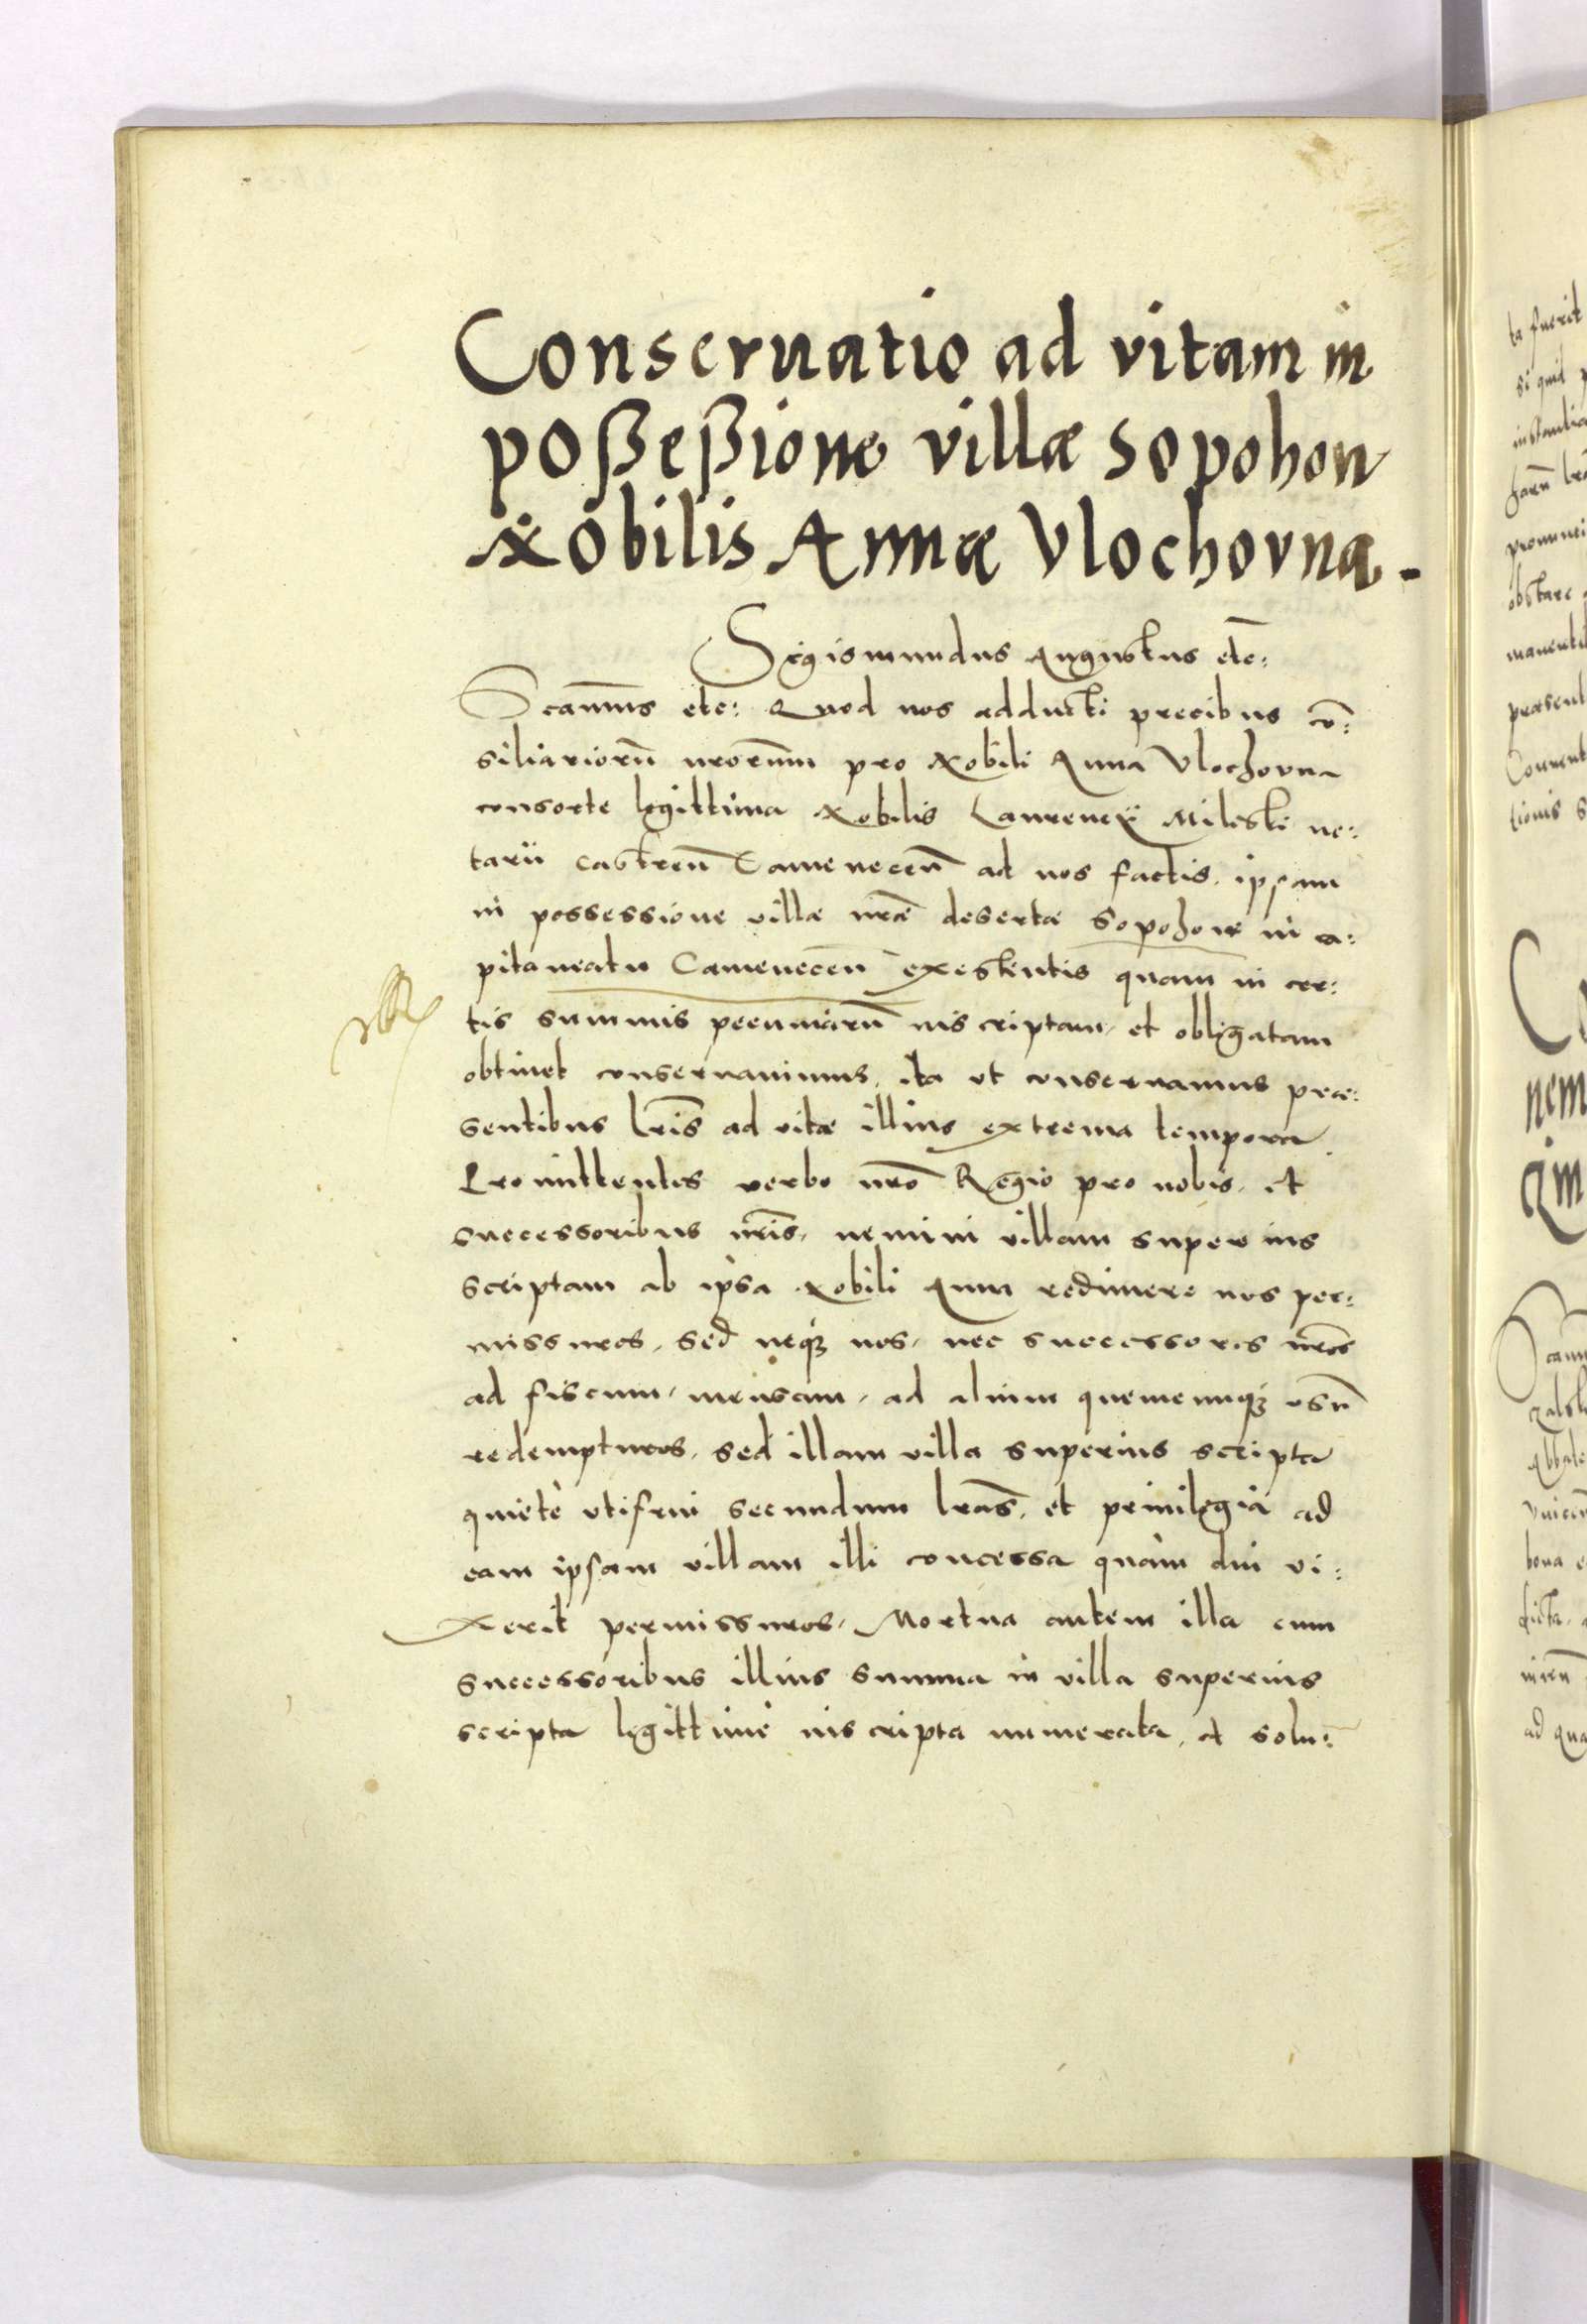 Conseruatio ad vitam in
poßeßione villæ Sopohow
Nobilis Annæ Vlochovna.
Sigismundus Augustus etc:
Significamus etc: Quod nos adducti precibus con:
siliariorũ nr̃orum pro Nobili Anna Vlochovna
consorte legittima Nobilis Laurencÿ Mileski no:
tarii castreñ Cameneceñ ad nos factis, ipsam
in possessione villæ nr̃æ desertæ Sopohow in ca:
pitaneatu Cameneceñ existentis quam in cer:
tis summis pecuniarũ inscriptam, et obligatam
obtinet conseruauimus, ita ut conseruamus præ:
sentibus lr̃is ad vitæ illius extrema tempora.
Promittentes verbo nr̃o Regio pro nobis, et
successoribus nr̃is, nemini villam superius
scriptam ab ipsa Nobili Anna redimere nos per:
missuros, sed neq3 nos, nec successores nr̃os
ad fiscum, mensam, ad alium quemcunq3 usũ
redempturos, sed illam villa superius scripta
quietè utifrui secundum lr̃as, et priuilegia ad
eam ipsam villam illi concessa quàm diu vi:
xerit permissuros, Mortua autem illa cum
successoribus illius summa in villa superius
scripta legittimè inscripta numerata, et solu:
ta fuerit
si quid